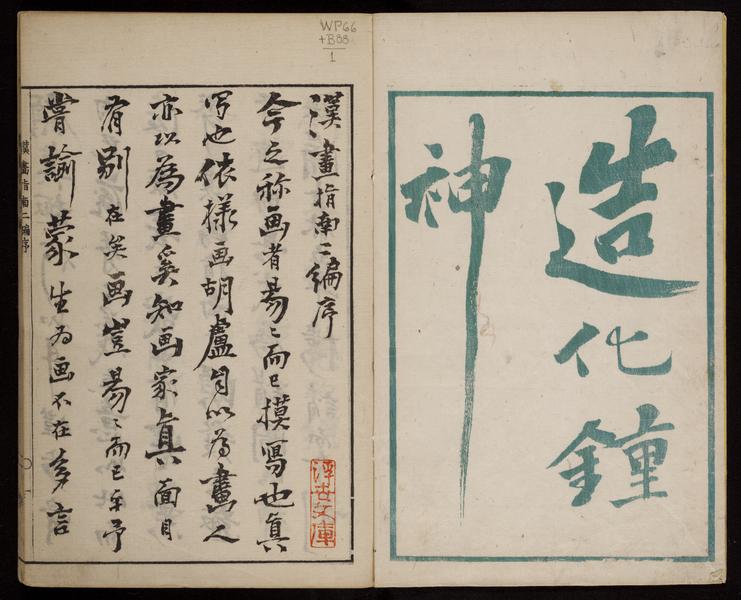 造化鍾
神
WP66
+B88
1
漢畫指南二編序
今之称画者易〻而已摸寫也真
写也依様画胡盧自以為畫人
亦以為畫奚知画家真面目
有別在矣画豈易〻而已乎予
嘗諭蒙生為画不在多言
漢畫指南二編序
浮世文庫